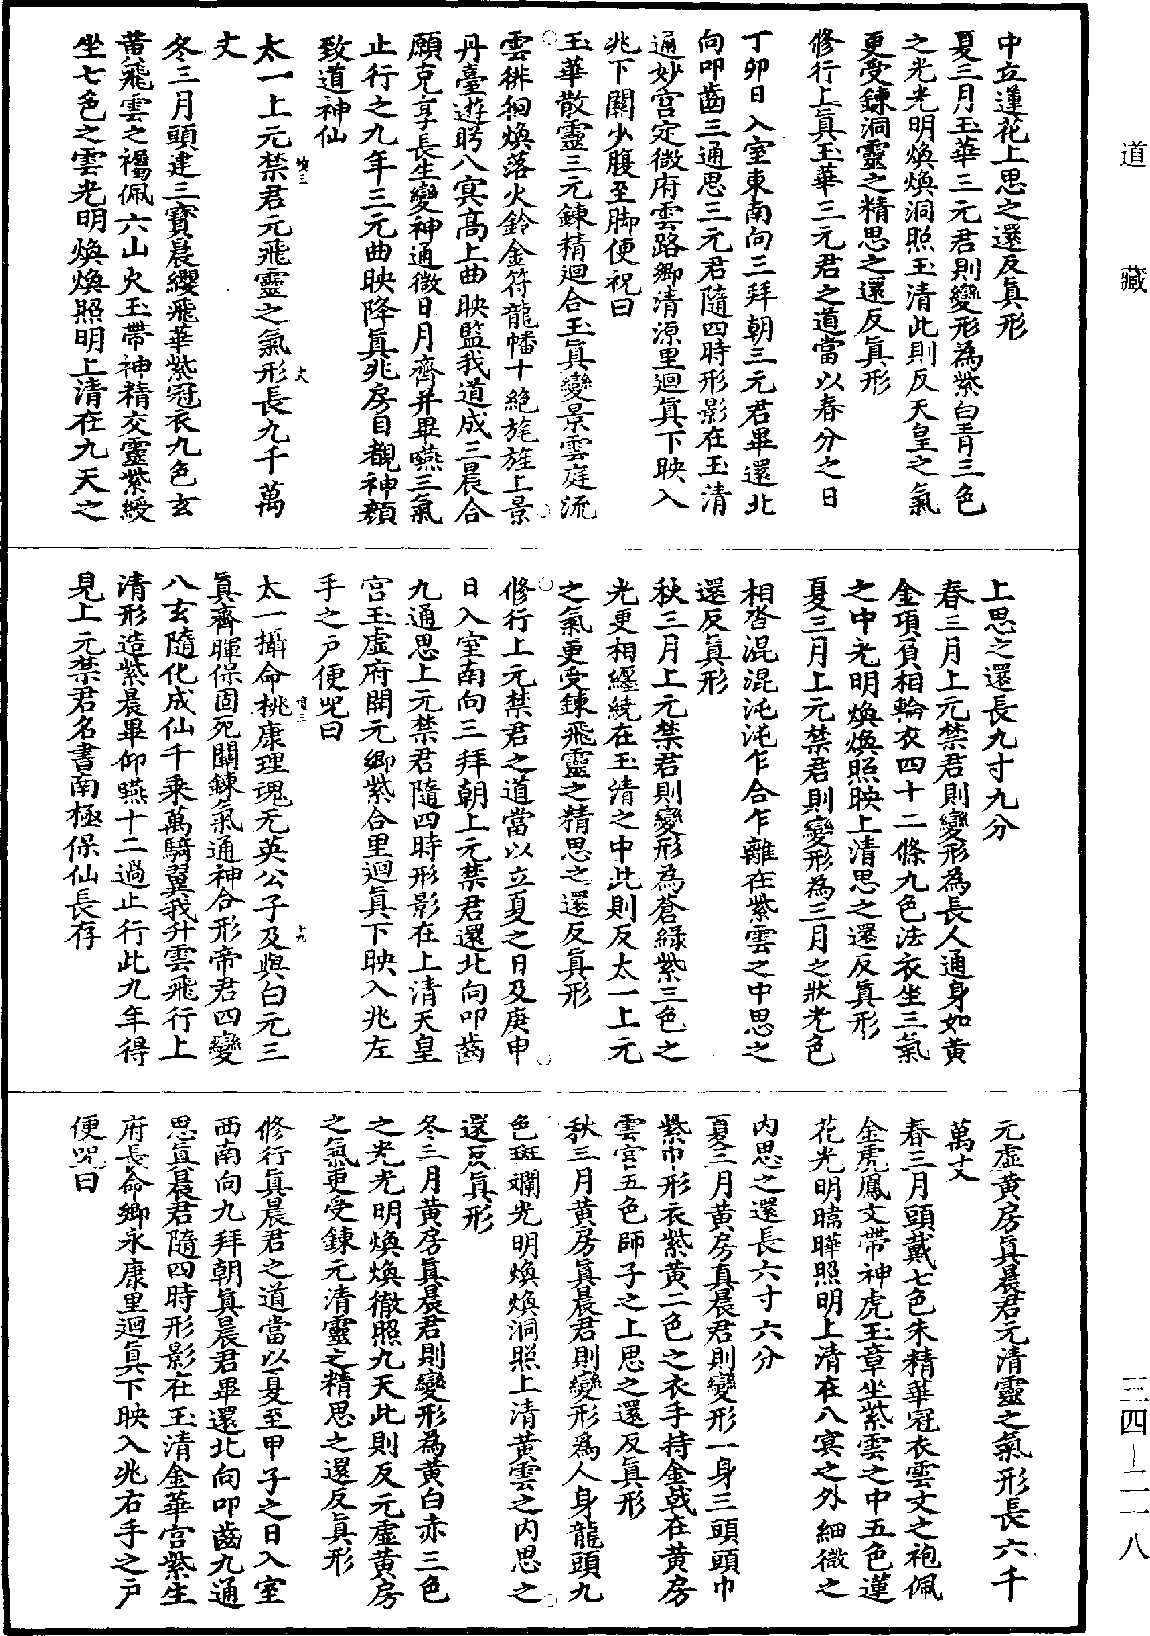 中立蓮花上思之還反眞形
夏三月玉華三元君則變形為紫白青三色
之光光明煥煥洞照玉清此則反天皇之氣
更受鍊洞靈之精思之還反眞形
修行上眞玉華三元君之道當以春分之日
丁卯日入室東南向三拜朝三元君畢還北
向叩齒三通思三元君隨四時形影在玉清
通妙宮定微府雲路鄉清源里迴眞下映入
兆下關少腹至脚便祝曰
玉華散靈三元鍊精迴合玉眞變景雲庭流
雲徘徊煥落火鈴金符龍幡十絕旄旌上景
丹臺遊眄八冥高上曲映監我道成三晨合
願克享長生變神通微日月齊并畢嚥三氣
止行之九年三元曲映降眞兆房自覩神顏
致道神仙
太一上元禁君元飛靈之氣形長九千萬
丈
冬三月頭建三寶晨纓飛華紫冠衣九色玄
黃飛雲之襡佩六山火玉帶神精交靈紫綬
坐七色之雲光明煥煥照明上清在九天之
上思之還長九寸九分
春三月上元禁君則變形為長人通身如黃
金項負相輪衣四十二條九色法衣坐三氣
之中光明煥煥照映上清思之還反眞形
夏三月上元禁君則變形為三月之狀光色
相沓混混沌沌乍合乍離在紫雲之中思之
還反眞形
秋三月上元禁君則變形為蒼綠紫三色之
光更相纏繞在玉清之中此則反太一上元
之氣更受鍊飛靈之精思之還反眞形
修行上元禁君之道當以立夏之日及庚申
日入室南向三拜朝上元禁君還北向叩齒
九通思上元禁君隨四時形影在上清天皇
宮玉虛府開元鄉紫合里迴眞下映入兆左
手之戶便咒曰
太一攝命桃康理魂无英公子及與白元三
眞齊暉保固死關鍊氣通神合形帝君四變
八玄隨化成仙千乘萬騎翼我升雲飛行上
清形造紫晨畢仰嚥十二過止行此九年得
見上元禁君名書南極保仙長存
元虛黃房眞晨君元清靈之氣形長六千
萬丈
春三月頭戴七色朱精華冠衣雲文之袍佩
金虎鳳文帶神虎玉章坐紫雲之中五色蓮
花光明曜曄照明上清在八冥之外細微之
內思之還長六寸六分
夏三月黃房真晨君則變形一身三頭頭巾
紫巾形衣紫黃二色之衣手持金戟在黃房
雲宮五色師子之上思之還反眞形
秋三月黃房眞晨君則變形爲人身龍頭九
色斑斕光明煥煥洞照上清黃雲之內思之
還反眞形
冬三月黃房眞晨君則變形為黃白赤三色
之光光明煥煥徹照九天此則反元虛黃房
之氣更受鍊元清靈之精思之還反眞形
修行眞晨君之道當以夏至甲子之日入室
西南向九拜朝眞晨君畢還北向叩齒九通
思真晨君隨四時形影在玉清金華宮紫生
府長命鄉永康里迴眞下映入兆右手之戶
便咒曰
道藏
三四-二一八